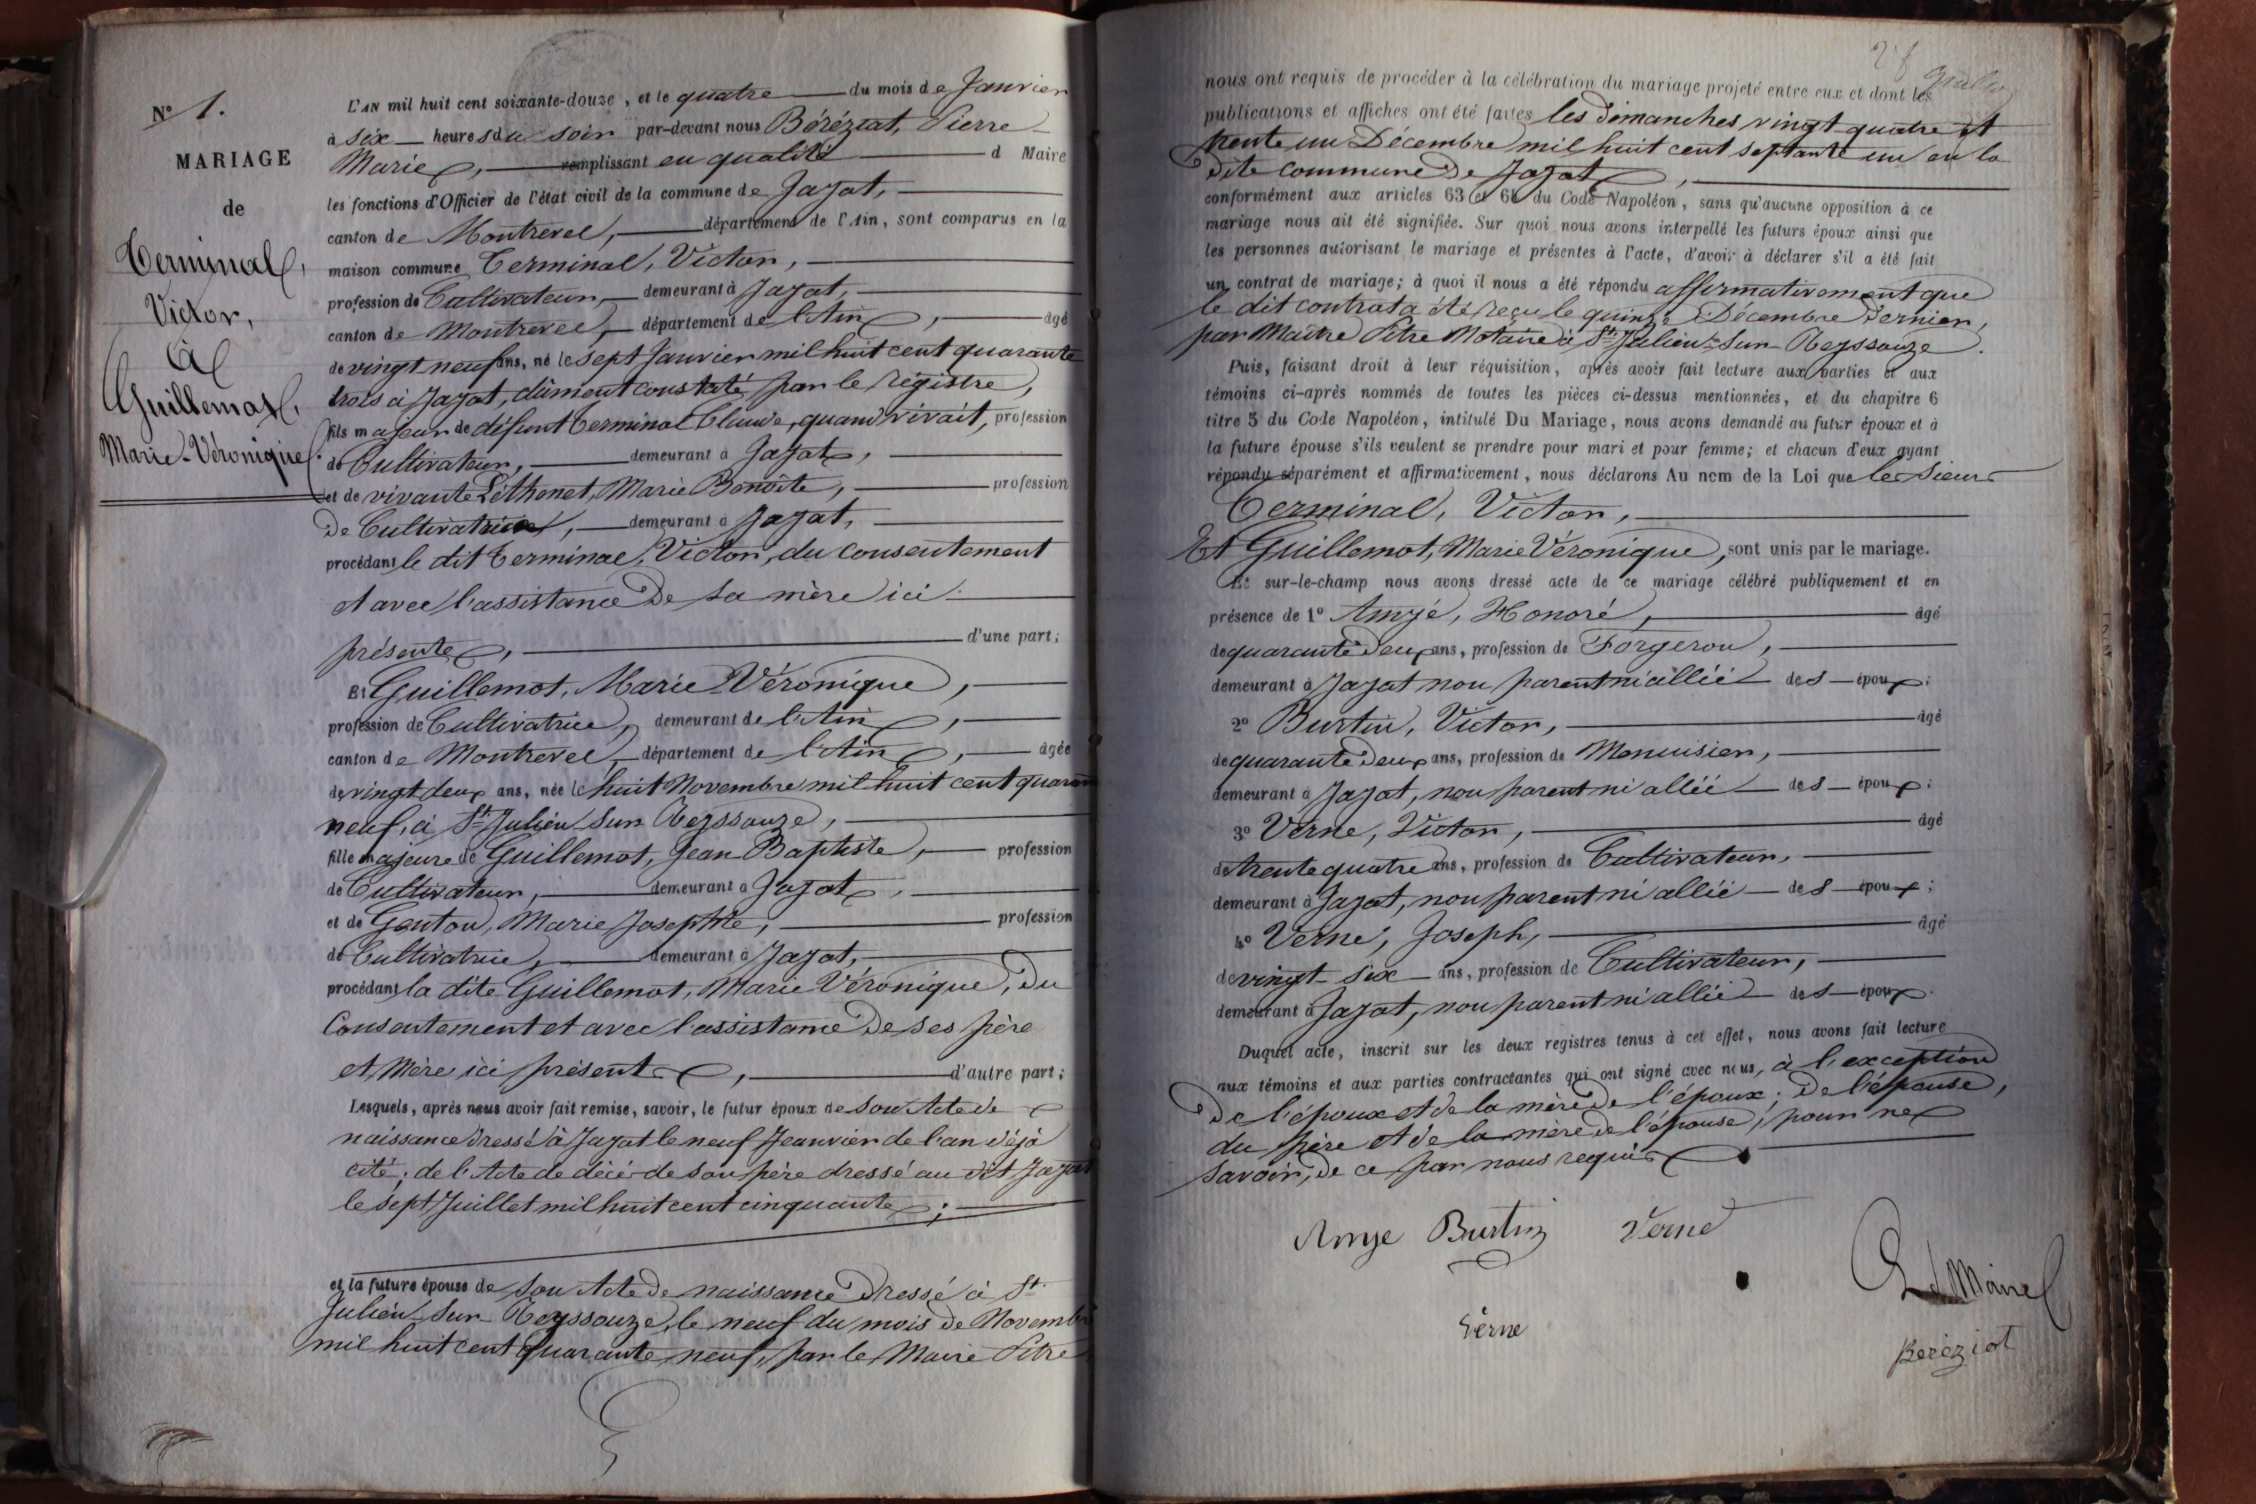 N° 1.
MARIAGE
de
Terminal,
Victor,
à
Guillemot,
Marie-Véronique.
L'AN mil huit cent soixante-douze, et le quatre du mois de Janvier
à six heures du soir par-devant nous Béréziat, Pierre
Marie, remplissant en qualité d Maire
les fonctions d'Officier de l'état civil de la commune de Jayat,
canton de Montrevel, département de l'Ain, sont comparus en la
maison commune Terminal, Victor,
profession de Cultivateur, demeurant à Jayat,
canton de Montrevel, département de l'Ain, âgé
de vingt neuf ans, né le sept Janvier mil huit cent quarante
trois à Jayat, dûment constaté par le régistre,
fils majeur de défunt Terminal Claude, quand vivait, profession
de Cultivateur, demeurant à Jayat,
et de vivante Léthenet, Marie Benoite, profession
De Cultivatrice, demeurant à Jayat,
procédant le dit Terminal, Victor, du consentement
et avec l'assistance De sa mère ici
présente, d'une part;
Et Guillemot, Marie Véronique,
profession de Cultivatrice, demeurant de l'Ain,
canton de Montrevel, département de l'Ain, âgée
de vingt deux ans, née le huit Novembre mil huit cent quarante
neuf, à St Julien-Sur-Reyssouze,
fille majeure de Guillemot, Jean-Baptiste, profession
de Cultivateur, demeurant à Jayat,
et de Gouton, Marie Josephte, profession
de Cultivatrice, demeurant à Jayat,
procédant la dite Guillemot, Marie Véronique, Du
Consentement et avec l'assistance De ses père
et Mère ici présent, d'autre part;
Lesquels, après nous avoir fait remise, savoir, le futur époux de son Acte de
naissance dressé à Jayat le neuf Jeanvier de l'an déjà
cité; de l'Acte de décè de son père dressé au dit Jayat
le sept Juillet mil huit cent cinquante;
et la future épouse de Son Acte De naissance Dressé à St
Julien-Sur-Reyssouze, le neuf du mois de Novembre
mil huit cent quarante neuf, par le Maire Pitre
28
nous ont requis de procéder à la célébration du mariage projeté entre eux et dont les
publications et affiches ont été faites les dimanches vingt-quatre et
trente un Décembre mil huit cent septante un en la
Dite commune De Jayat,
conformément aux articles 63 et 64 du Code Napoléon, sans qu'aucune opposition à ce
mariage nous ait été signifiée. Sur quoi nous avons interpellé les futurs époux ainsi que
les personnes autorisant le mariage et présentes à l'acte, d'avoir à déclarer s'il a été fait
un contrat de mariage; à quoi il nous a été répondu affirmativement que
le dit contrat a été reçu le quinze Décembre Dernier,
par Maitre Pitre Notaire à St Julien-Sur-Reyssouze.
Puis, faisant droit à leur réquisition, après avoir fait lecture aux parties et aux
témoins ci-après nommés de toutes les pièces ci-dessus mentionnées, et du chapitre 6
titre 5 du Code Napoléon, intitulé Du Mariage, nous avons demandé au futur époux et à
la future épouse s'ils veulent se prendre pour mari et pour femme; et chacun d'eux ayant
répondu séparément et affirmativement, nous déclarons Au nom de la Loi que le Sieur
Terminal, Victor,
Et Guillemot, Marie Véronique, sont unis par le mariage.
Et sur-le-champ nous avons dressé acte de ce mariage célébré publiquement et en
présence de 1° Amyé, Honoré, âgé
de quarante Deux ans, profession de Forgeron,
demeurant à Jayat non parent ni alliée des époux;
2° Burtin, Victor, âgé
de quarante Deux ans, profession de Menuisier,
demeurant à Jayat, non parent ni alliée des époux;
3° Verne, Victor, âgé
de trente quatre ans, profession de Cultivateur,
demeurant à Jayat, non parent ni alliée des époux;
4° Verne, Joseph, âgé
de vingt-six ans, profession de Cultivateur,
demeurant à Jayat, non parent ni alliée des époux.
Duquel acte, inscrit sur les deux registres tenus à cet effet, nous avons fait lecture
aux témoins et aux parties contractantes qui ont signé avec nous, à l'exception
De l'époux et de la mère De l'époux; De l'épouse,
du père et de la mère de l'épouse, pour ne
savoir, de ce par nous requis.
Amye Burtin Verne
Verne
Le Maire
Béréziat